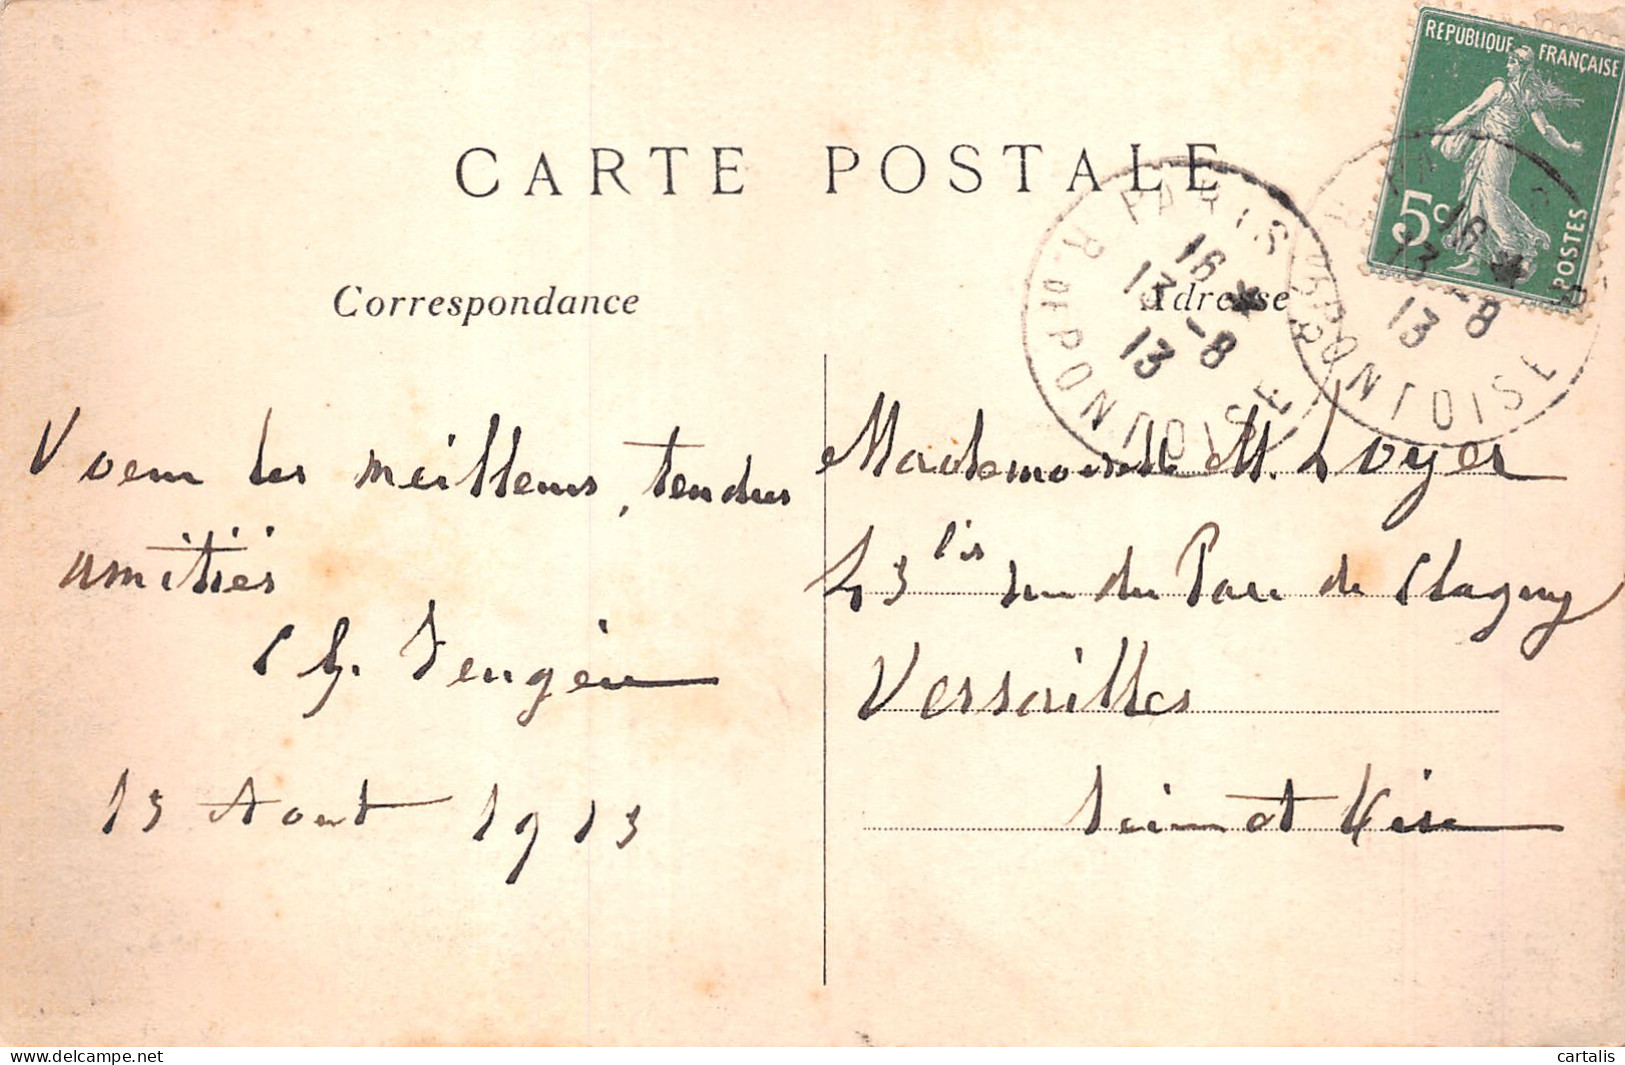 CARTE POSTALE
RÉPUBLIQUE FRANÇAISE
5c
POSTES
PARIS
R. DE PONTOISE
16 *
13 -8
13
16 *
13 -8
13
R. DE PONTOISE
Correspondance
Adresse
Voeux les meilleurs, tendres
amitiés
Ch.
13 Aout 1913
Mademoiselle M. Loyer
43 bis rue du Parc de Clagny
Versailles
Seine et Oise
www.delcampe.net
cartalis